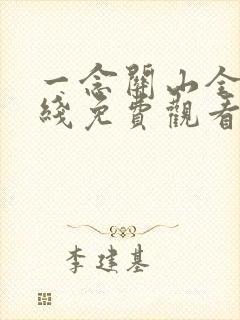 一念關山全
綫免費觀看
李建基